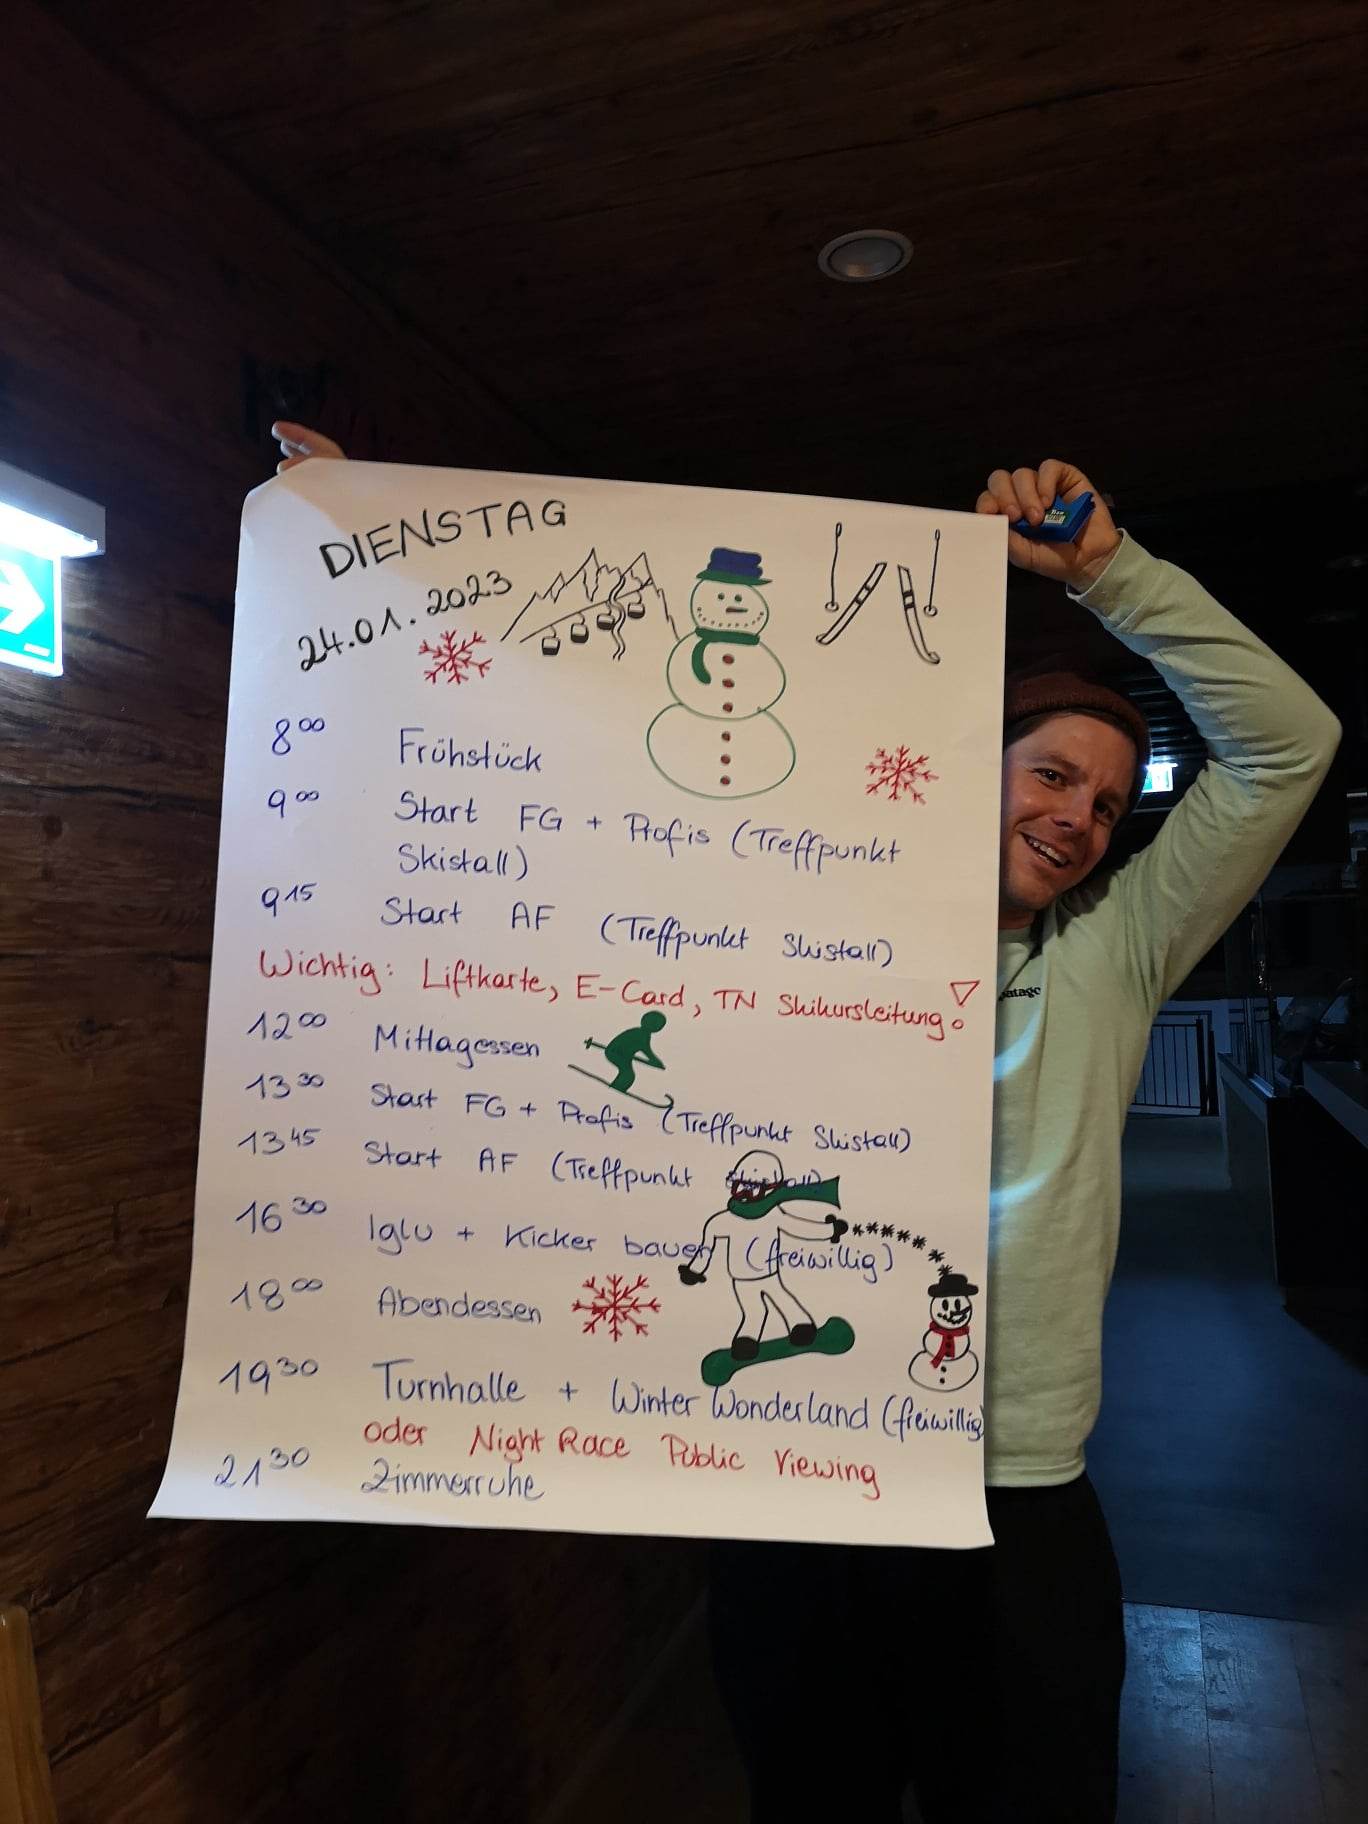 DIENSTAG
24.01.2023
8⁰⁰ Frühstück
9⁰⁰ Start FG + Profis (Treffpunkt
Skistall)
9¹⁵ Start AF (Treffpunkt Skistall)
Wichtig: Liftkarte, E-Card, TN Skikursleitung!
12⁰⁰ Mittagessen
13³⁰ Start FG + Profis (Treffpunkt Skistall)
13⁴⁵ Start AF (Treffpunkt Skistall)
16³⁰ Iglu + Kicker bauen (freiwillig)
18⁰⁰ Abendessen
19³⁰ Turnhalle + Winter Wonderland (freiwillig)
oder Night Race Public Viewing
21³⁰ Zimmerruhe